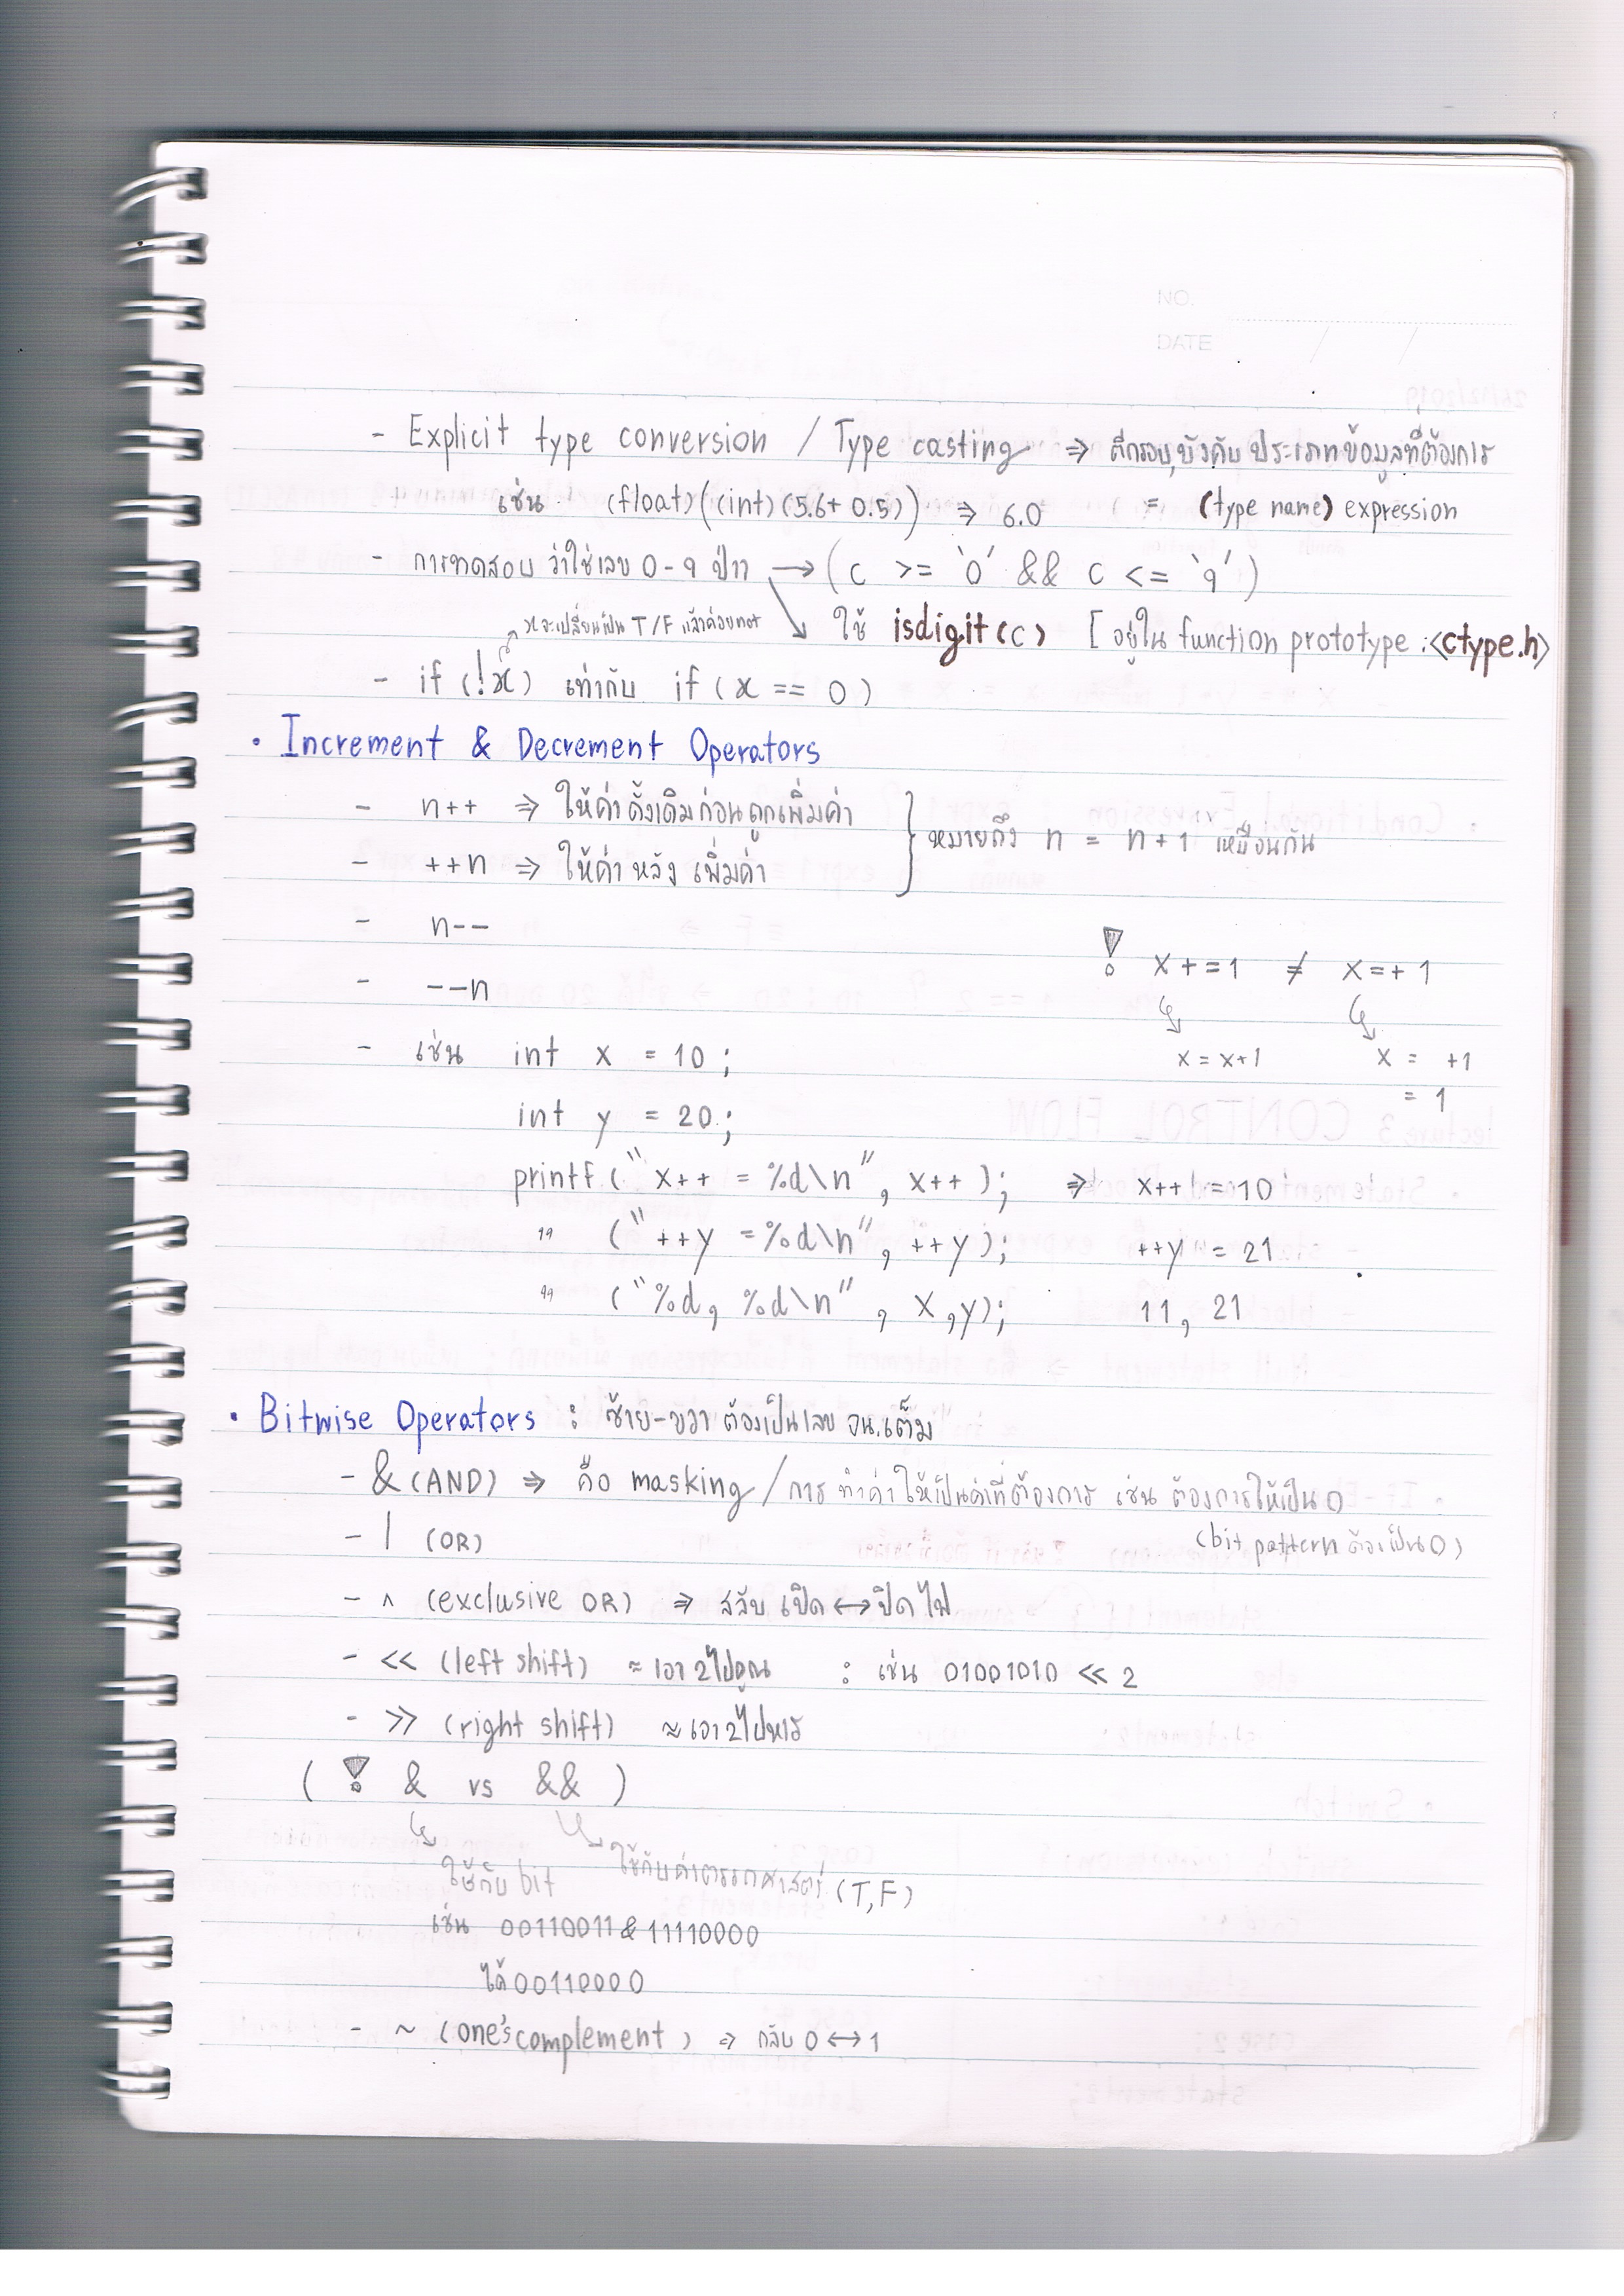 NO.
DATE / /
- Explicit type conversion / Type casting ⇒ ตีกรอบ,บังคับ ประเภทข้อมูลที่ต้องการ
เช่น (float)((int)(5.6+0.5)) ⇒ 6.0 = (type name) expression
- การทดสอบ ว่าใช่เลข 0-9 ป่าว → (c >= '0' && c <= '9')
x จะเปลี่ยนเป็น T/F แล้วค่อย not
ใช้ isdigit(c) [ อยู่ใน function prototype :<ctype.h>
- if (!x) เท่ากับ if (x == 0)
• Increment & Decrement Operators
- n++ ⇒ ให้ค่าดั้งเดิมก่อนถูกเพิ่มค่า
- ++n ⇒ ให้ค่าหลัง เพิ่มค่า
} หมายถึง n = n+1 เหมือนกัน
- n--
- --n
! x+=1 ≠ x=+1
x = x+1 x = +1
= 1
- เช่น int x = 10 ;
int y = 20 ;
printf ("x++ = %d\n", x++ ); ⇒ x++ = 10
" ("++y = %d\n", ++y); ++y = 21
" ("%d, %d\n", x,y); 11, 21
• Bitwise Operators : ซ้าย-ขวา ต้องเป็นเลข จน.เต็ม
- & (AND) ⇒ คือ masking / การ ทำค่า ให้เป็นค่าที่ต้องการ เช่น ต้องการให้เป็น 0
(bit pattern ต้องเป็น 0)
- | (OR)
- ^ (exclusive OR) ⇒ สลับ เปิด ↔ ปิด ไฟ
- << (left shift) ≈ เอา 2 ไปคูณ : เช่น 01001010 << 2
- >> (right shift) ≈ เอา 2 ไปหาร
( ! & vs && )
ใช้กับ bit
ใช้กับค่าตรรกศาสตร์ (T,F)
เช่น 00110011 & 11110000
ได้ 00110000
- ~ (one's complement ) ⇒ กลับ 0 ↔ 1